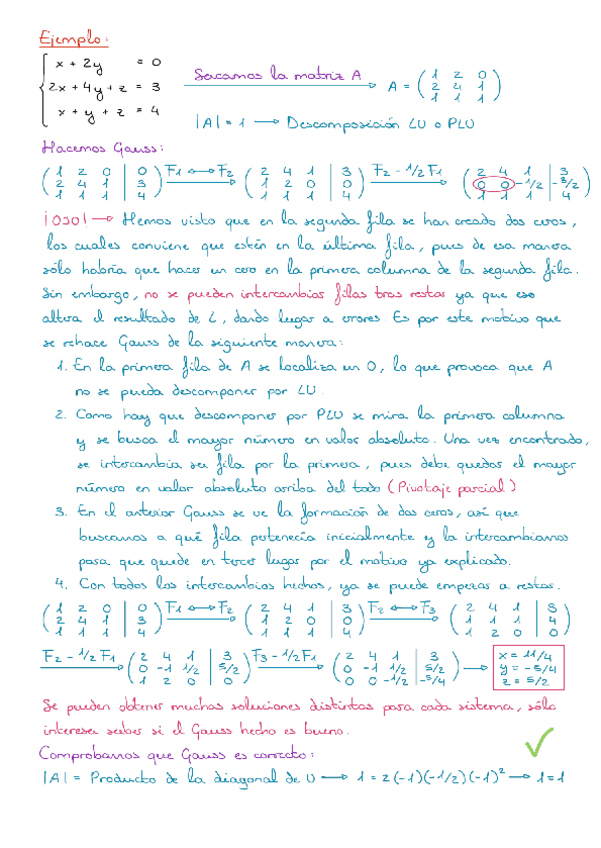 Ejemplo:
x + 2y = 0
2x + 4y + z = 3
x + y + z = 4
Sacamos la matriz A
A = ( 1 2 0
2 4 1
1 1 1 )
|A| = 1 → Descomposición LU o PLU
Hacemos Gauss:
( 1 2 0 | 0
2 4 1 | 3
1 1 1 | 4 ) F1 ↔ F2 ( 2 4 1 | 3
1 2 0 | 0
1 1 1 | 4 ) F2 - 1/2 F1 ( 2 4 1 | 3
0 0 -1/2 | -3/2
1 1 1 | 4 )
¡Ojo! → Hemos visto que en la segunda fila se han creado dos ceros,
los cuales conviene que estén en la última fila, pues de esa manera
sólo habría que hacer un cero en la primera columna de la segunda fila.
Sin embargo, no se pueden intercambiar filas tras restar ya que eso
altera el resultado de L, dando lugar a errores. Es por este motivo que
se rehace Gauss de la siguiente manera:
1. En la primera fila de A se localiza un 0, lo que provoca que A
no se pueda descomponer por LU.
2. Como hay que descomponer por PLU se mira la primera columna
y se busca el mayor número en valor absoluto. Una vez encontrado,
se intercambia su fila por la primera, pues debe quedar el mayor
número en valor absoluto arriba del todo (Pivotaje parcial)
3. En el anterior Gauss se ve la formación de dos ceros, así que
buscamos a qué fila pertenecía inicialmente y la intercambiamos
para que quede en tercer lugar por el motivo ya explicado.
4. Con todos los intercambios hechos, ya se puede empezar a restar.
( 1 2 0 | 0
2 4 1 | 3
1 1 1 | 4 ) F1 ↔ F2 ( 2 4 1 | 3
1 2 0 | 0
1 1 1 | 4 ) F2 ↔ F3 ( 2 4 1 | 3
1 1 1 | 4
1 2 0 | 0 )
F2 - 1/2 F1 ( 2 4 1 | 3
0 -1 1/2 | 5/2
1 2 0 | 0 ) F3 - 1/2 F1 ( 2 4 1 | 3
0 -1 1/2 | 5/2
0 0 -1/2 | -5/4 ) →
x = 11/4
y = -5/4
z = 5/2
Se pueden obtener muchas soluciones distintas para cada sistema, sólo
interesa saber si el Gauss hecho es bueno.
Comprobamos que Gauss es correcto:
|A| = Producto de la diagonal de U → 1 = 2(-1)(-1/2)(-1)² → 1=1